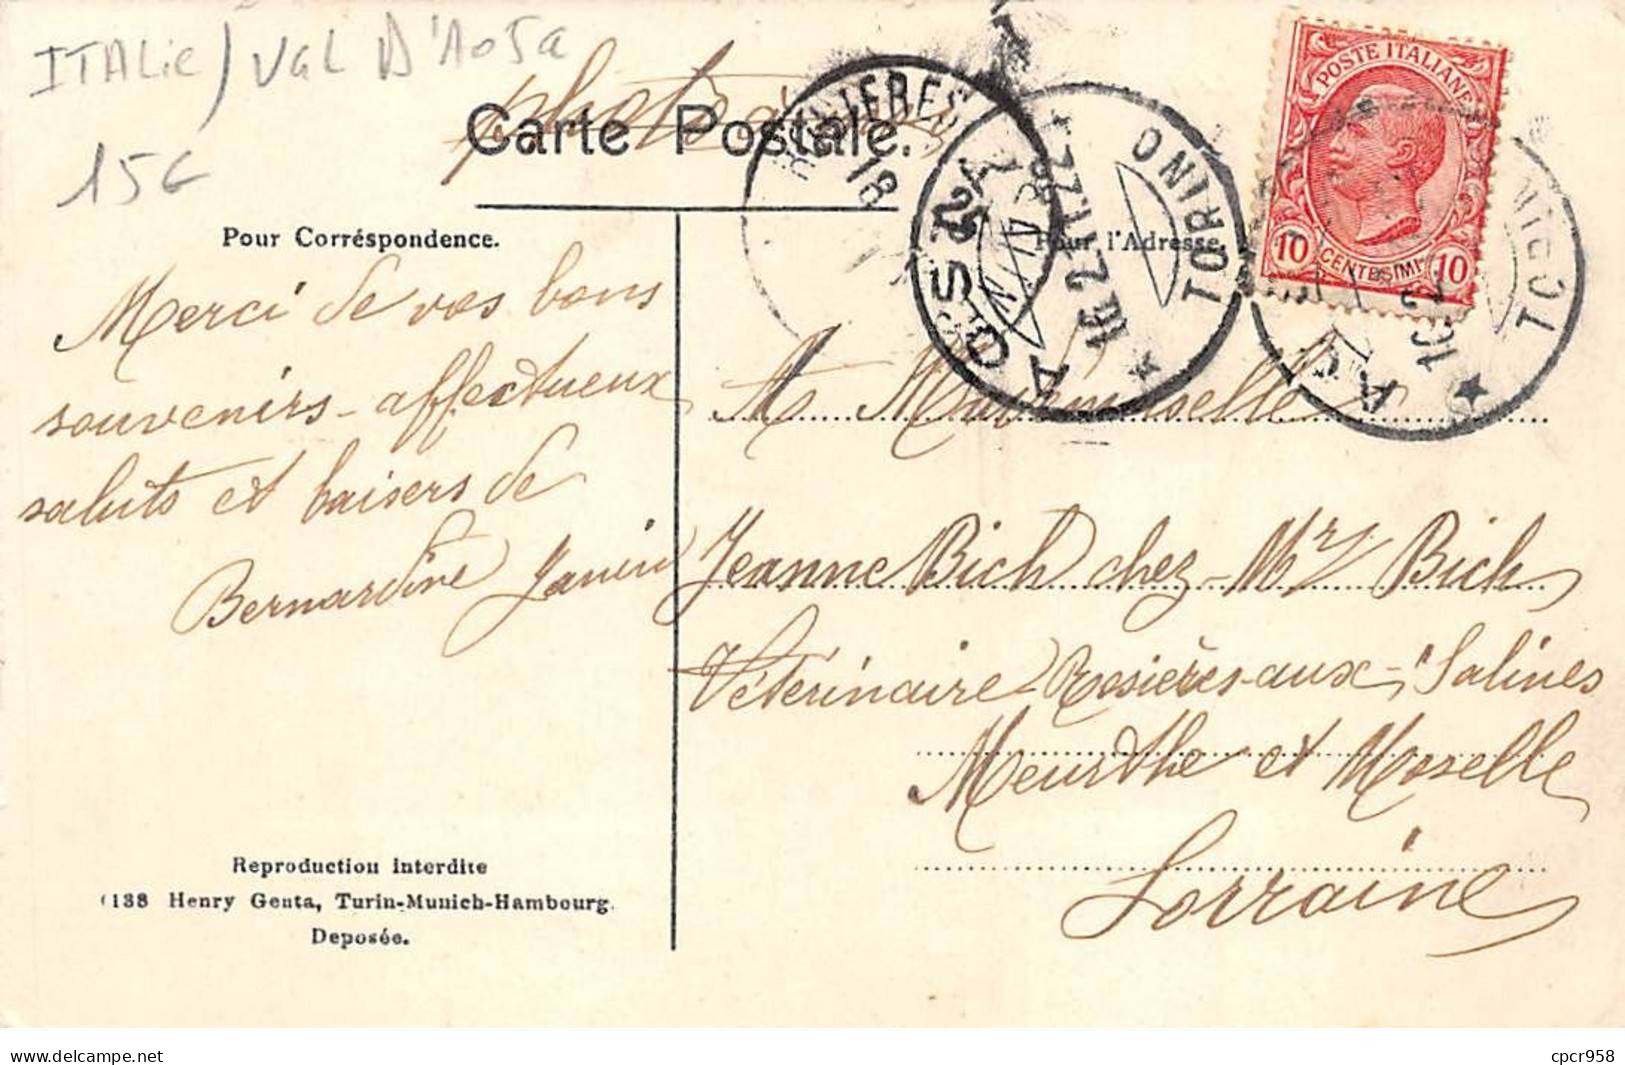 ITALIE / VAL D'AOSA
15€
photo
Carte Postale.
ROSIERES
18
AOSTA
TORINO
16 2 11 22
POSTE ITALIANE
10 CENTESIMI 10
TORINO
A
Pour Corréspondence.
Pour l'Adresse.
Merci de vos bons
souvenirs - affectueux
saluts et baisers de
Bernardine Janin
A Mademoiselle
Jeanne Bich chez Mr Bich
Véterinaire Rosières-aux-Salines
Meurthe et Moselle
Lorraine
Reproduction interdite
6138 Henry Genta, Turin-Munich-Hambourg.
Deposée.
www.delcampe.net
cpcr958